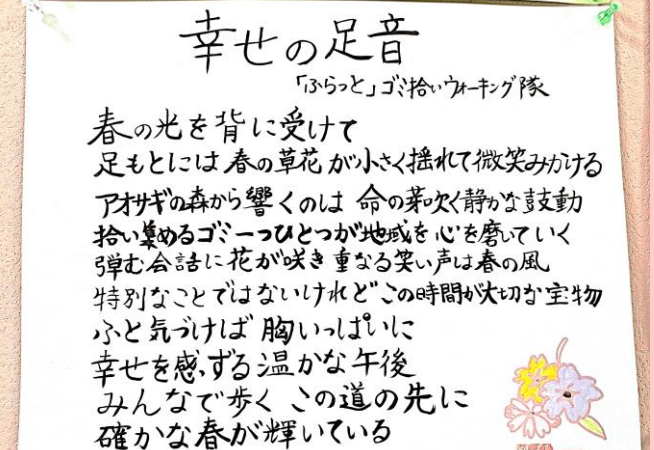 幸せの足音
「ふらっと」ゴミ拾いウォーキング隊
春の光を背に受けて
足もとには 春の草花 が小さく揺れて微笑みかける
アオサギの森から響くのは 命の芽吹く静かな鼓動
拾い集めるゴミ一つひとつが地域を心を磨いていく
弾む会話に花が咲き重なる笑い声は春の風
特別なことではないけれど この時間が大切な宝物
ふと気づけば 胸いっぱいに
幸せを感ずる温かな午後
みんなで歩く この道の先に
確かな春が輝いている